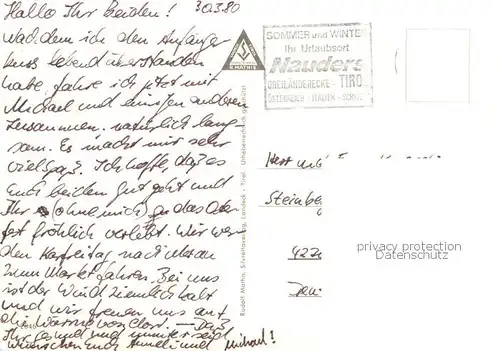 Hallo Ihr beiden! 30.3.80
Nachdem ich den Anfänger
kurs lebend überstanden
habe, fahre ich jetzt mit
Michael und einigen anderen
zusammen. natürlich lang
sam. Es macht mir sehr
viel Spaß. Ich hoffe, daß es
Euch beiden gut geht und
Ihr (ohne mich) das Oster
fest fröhlich verlebt. Wir werden
den Karfreitag nach Meran
zum Markt fahren. Bei uns
ist der Wind ziemlich kalt
und wir freuen uns auf
die Wärme von dort. — Daß
Ihr gesund und munter seid
wünschen Euch und Michael!
SOMMER und WINTER
Ihr Urlaubsort
Nauders
DREILÄNDERECKE - TIROL
ÖSTERREICH - ITALIEN - SCHWEIZ
R. MATHIS
Rudolf Mathis, Silvrettaverlag, Landeck - Tirol. Urheberrechtlich geschützt
Herr u.
Steinbe
422
privacy protection
Datenschutz